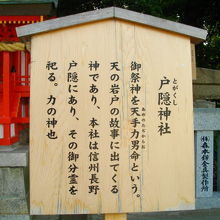 とがくし
戸隠神社
あめのたぢからお
御祭神を天手力男命という。
天の岩戸の故事に出てくる
神であり、本社は信州長野
戸隠にあり、その御分霊を
祀る。力の神也
㈱森本錺金具製作所